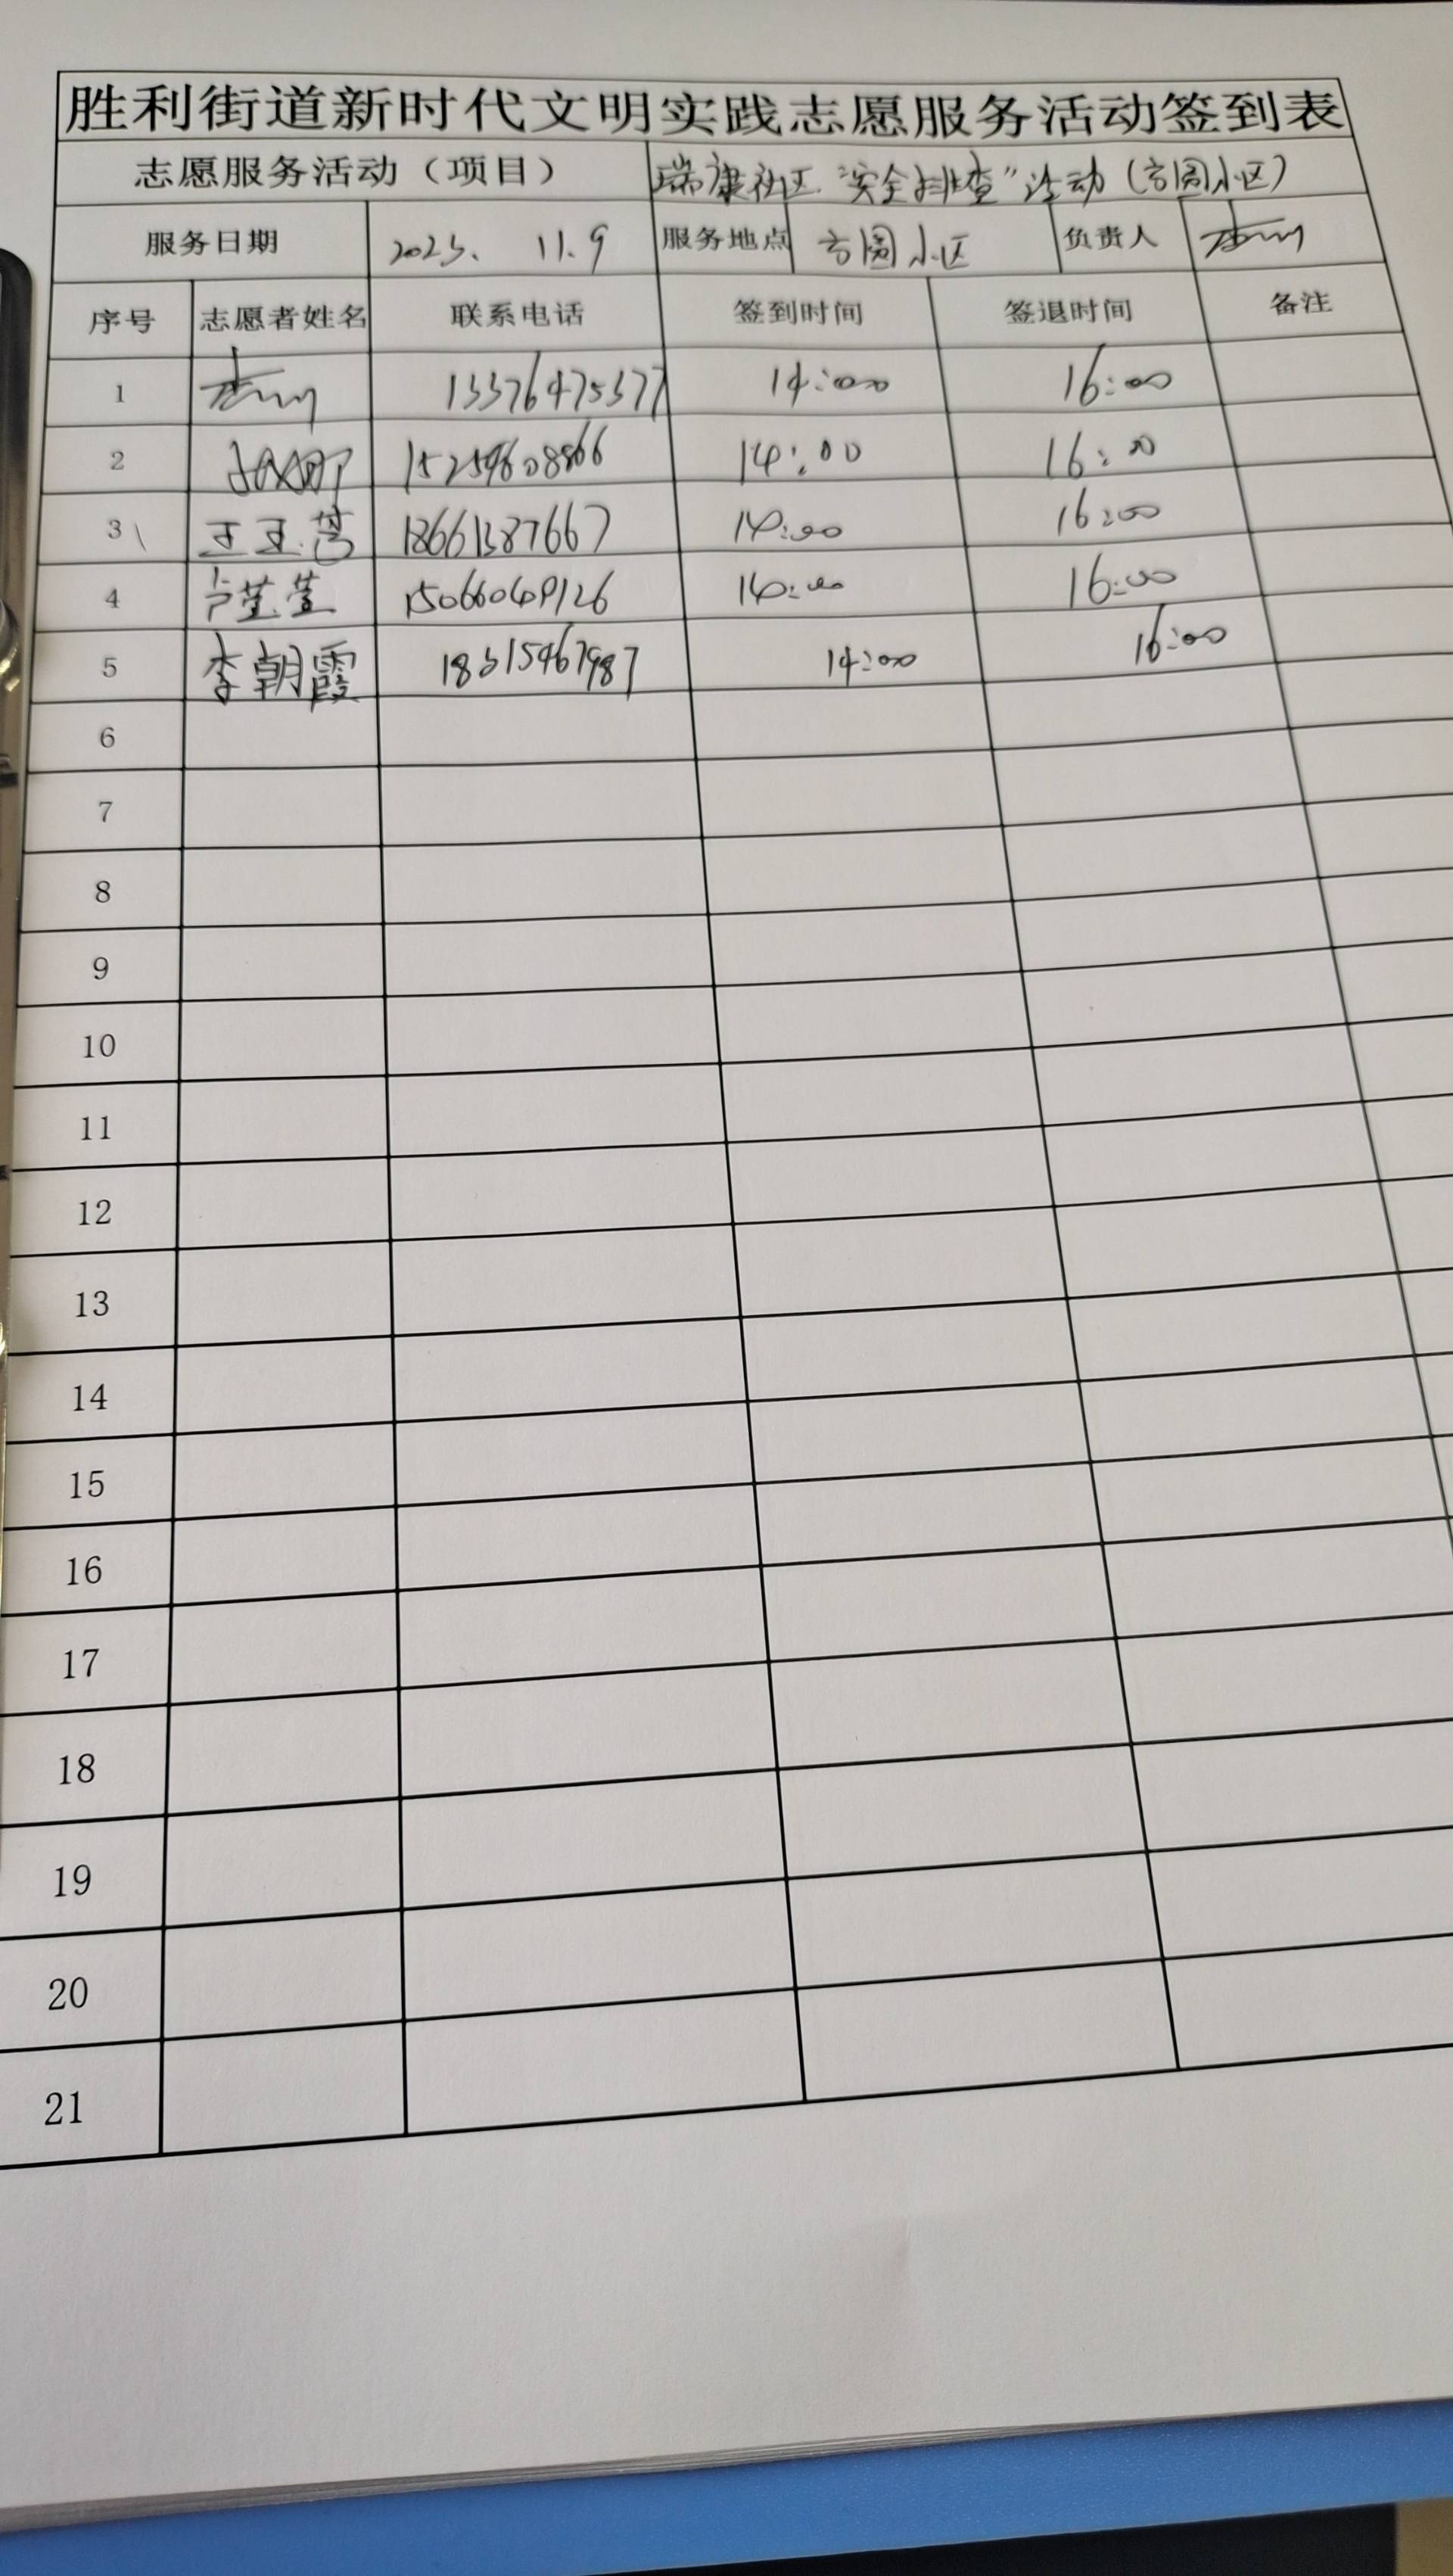 胜利街道新时代文明实践志愿服务活动签到表
志愿服务活动（项目） 瑞康社区"安全排查"活动（方圆小区）
服务日期 2023. 11.9 服务地点 方圆小区 负责人
序号 志愿者姓名 联系电话 签到时间 签退时间 备注
1 13376475377 14:00 16:00
2 14:00 16:00
3 18661387667 14:00 16:00
4 15066049126 14:00 16:00
5 李朝霞 18315467987 14:00 16:00
6
7
8
9
10
11
12
13
14
15
16
17
18
19
20
21